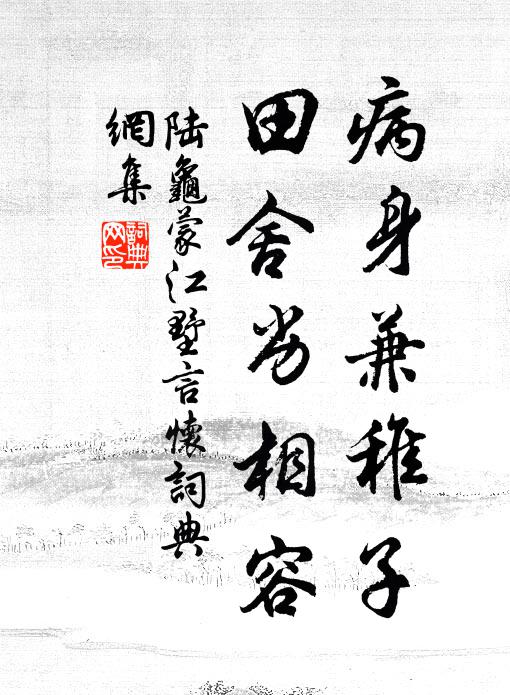 病身兼稚子
田舍劣相容
陆龜蒙江墅言懷詞典
網集
詞典
网印